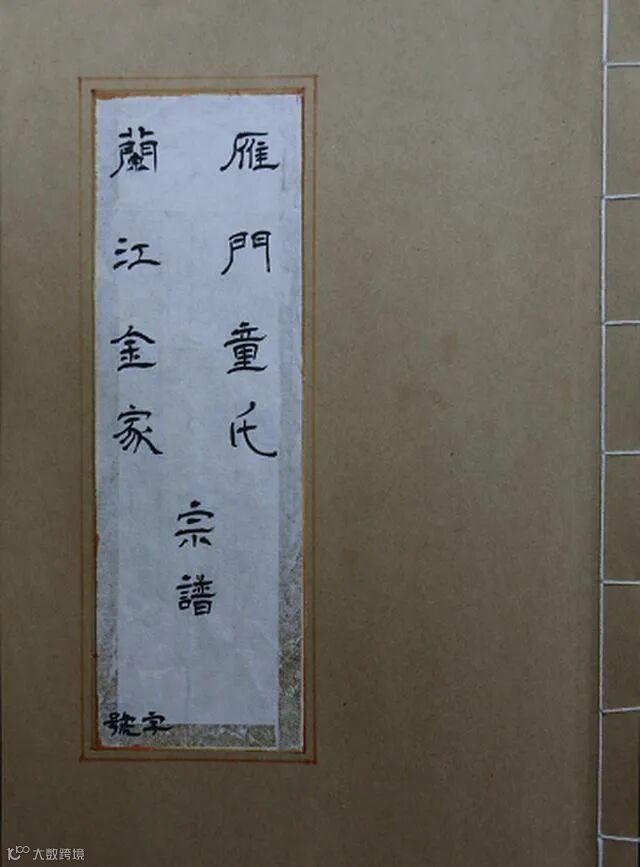 雁門童氏
蘭江金家
宗譜
字號
大数跨境